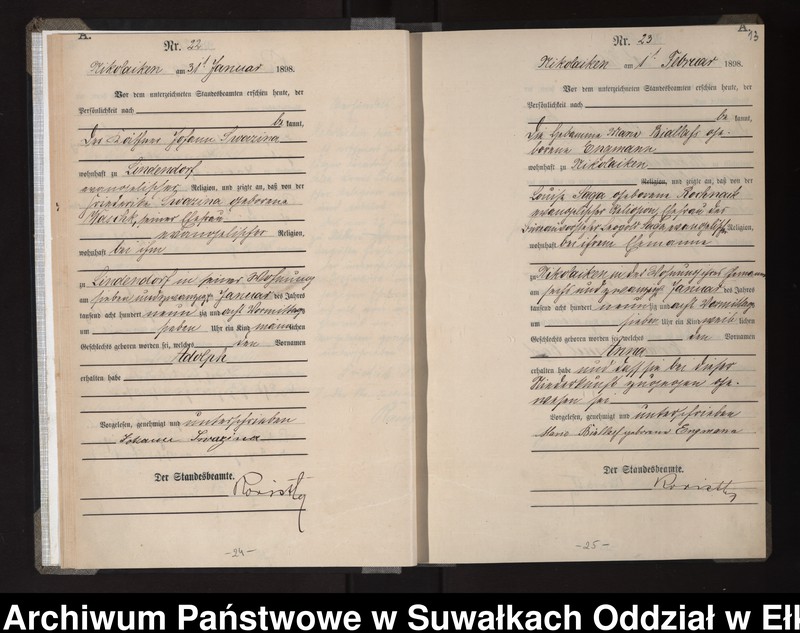 A.
Nr. 22
Nikolaiken am 31t Januar 1898.
Vor dem unterzeichneten Standesbeamten erschien heute, der
Persönlichkeit nach
be kannt,
Johann Swazina
wohnhaft zu Lindendorf
evangelischer Religion, und zeigte an, daß von der
Swazina geborene
seiner Ehefrau
evangelischer Religion,
wohnhaft bei ihm
zu Lindendorf in seiner Wohnung
am sieben und zwanzig Januar des Jahres
tausend acht hundert neun zig und acht Vormittags
um sieben Uhr ein Kind männlichen
Geschlechts geboren worden sei, welches den Vornamen
Adolph
erhalten habe
Vorgelesen, genehmigt und unterschrieben
Johann Swazina
Der Standesbeamte.
-24-
A.
13
Nr. 23
Nikolaiken am 1t Februar 1898.
Vor dem unterzeichneten Standesbeamten erschien heute, der
Persönlichkeit nach
be kannt,
Die Hebamme Marie Biallass ge-
borene Engmann
wohnhaft zu Nikolaiken
Religion, und zeigte an, daß von der
Louise Saga geborene
evangelischer Religion, Ehefrau des
Leopold Saga evangelischer Religion,
wohnhaft bei ihrem Ehemanne
zu Nikolaiken in der Wohnung ihres Ehemannes
am sechs und zwanzig Januar des Jahres
tausend acht hundert neun zig und acht Vormittags
um sieben Uhr ein Kind weib lichen
Geschlechts geboren worden sei, welches den Vornamen
Anna
erhalten habe und dass sie bei dieser
Niederkunft zugegen ge-
wesen sei
Vorgelesen, genehmigt und unterschrieben
Marie Biallass geborene Engmann
Der Standesbeamte.
-25-
Archiwum Państwowe w Suwałkach Oddział w Ełk